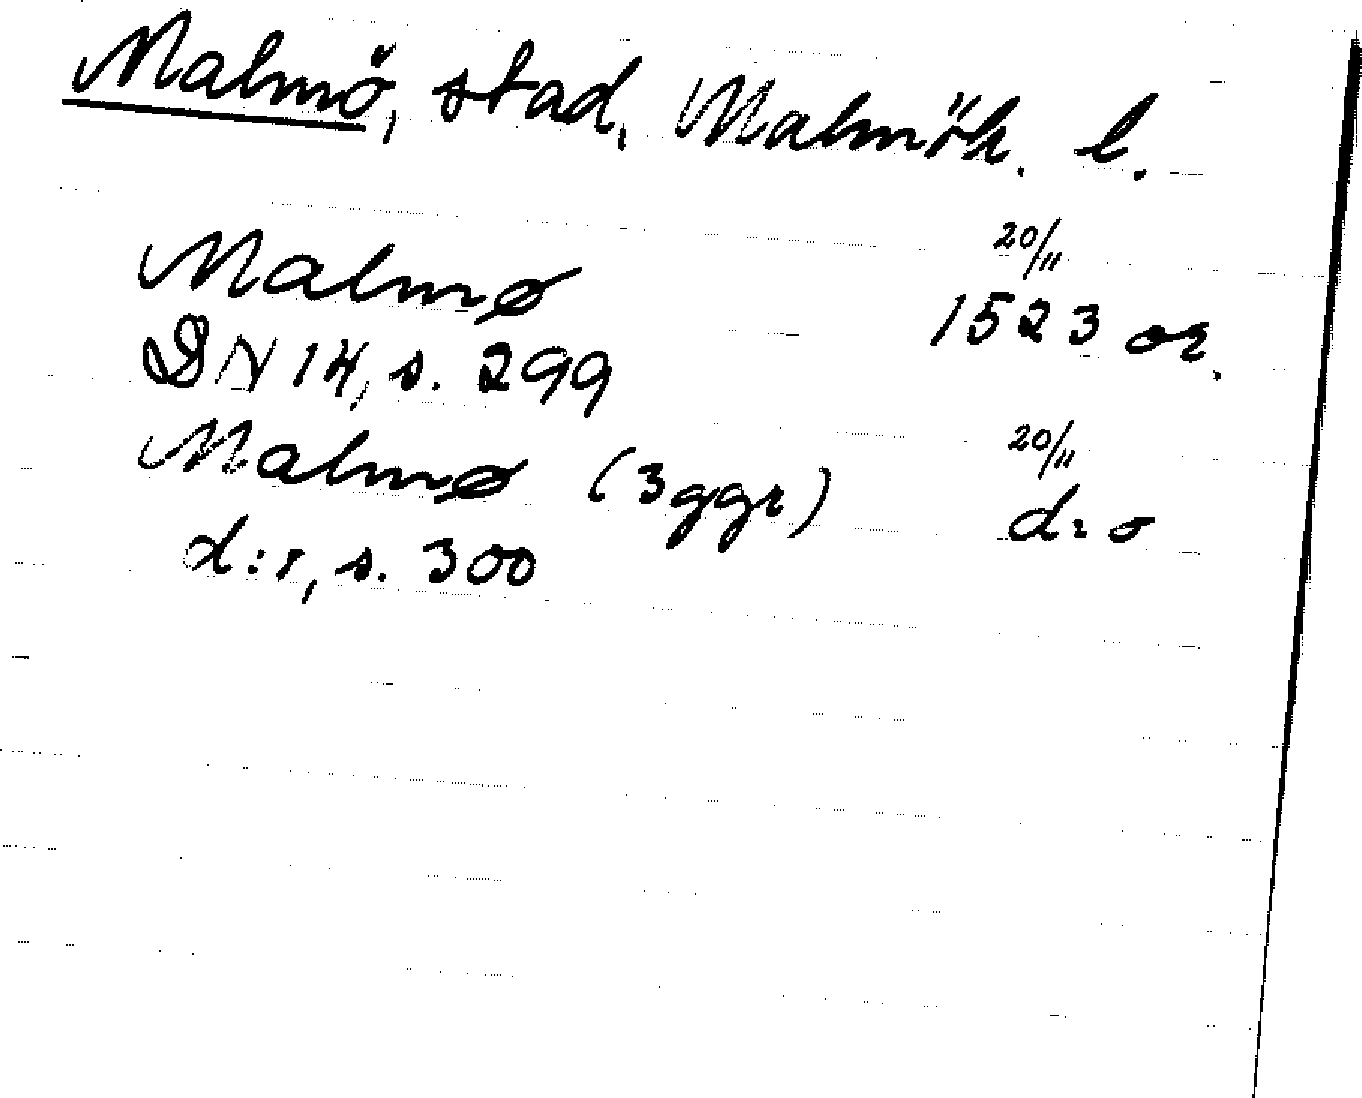 Malmö, stad, Malmöh. l.
Malmø 20/11 1523 or.
DN 14, s. 299
Malmø (3 ggr) 20/11 d:o
d:r, s. 300